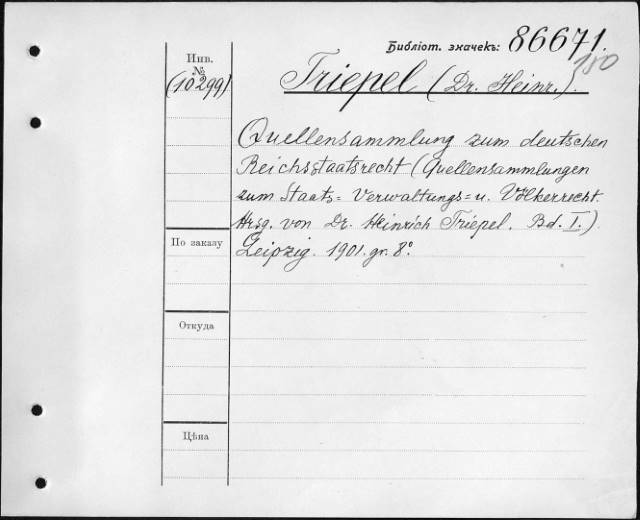 Библіот. значекъ: 86671.
180
Инв.
№
(10299)
Triepel (Dr. Heinr.).
Quellensammlung zum deutschen
Reichsstaatsrecht (Quellensammlungen
zum Staats= Verwaltungs= u. Völkerrecht.
Hrsg. von Dr. Heinrich Triepel. Bd. I.)
Leipzig. 1901. gr. 8°
По заказу
Откуда
Цѣна